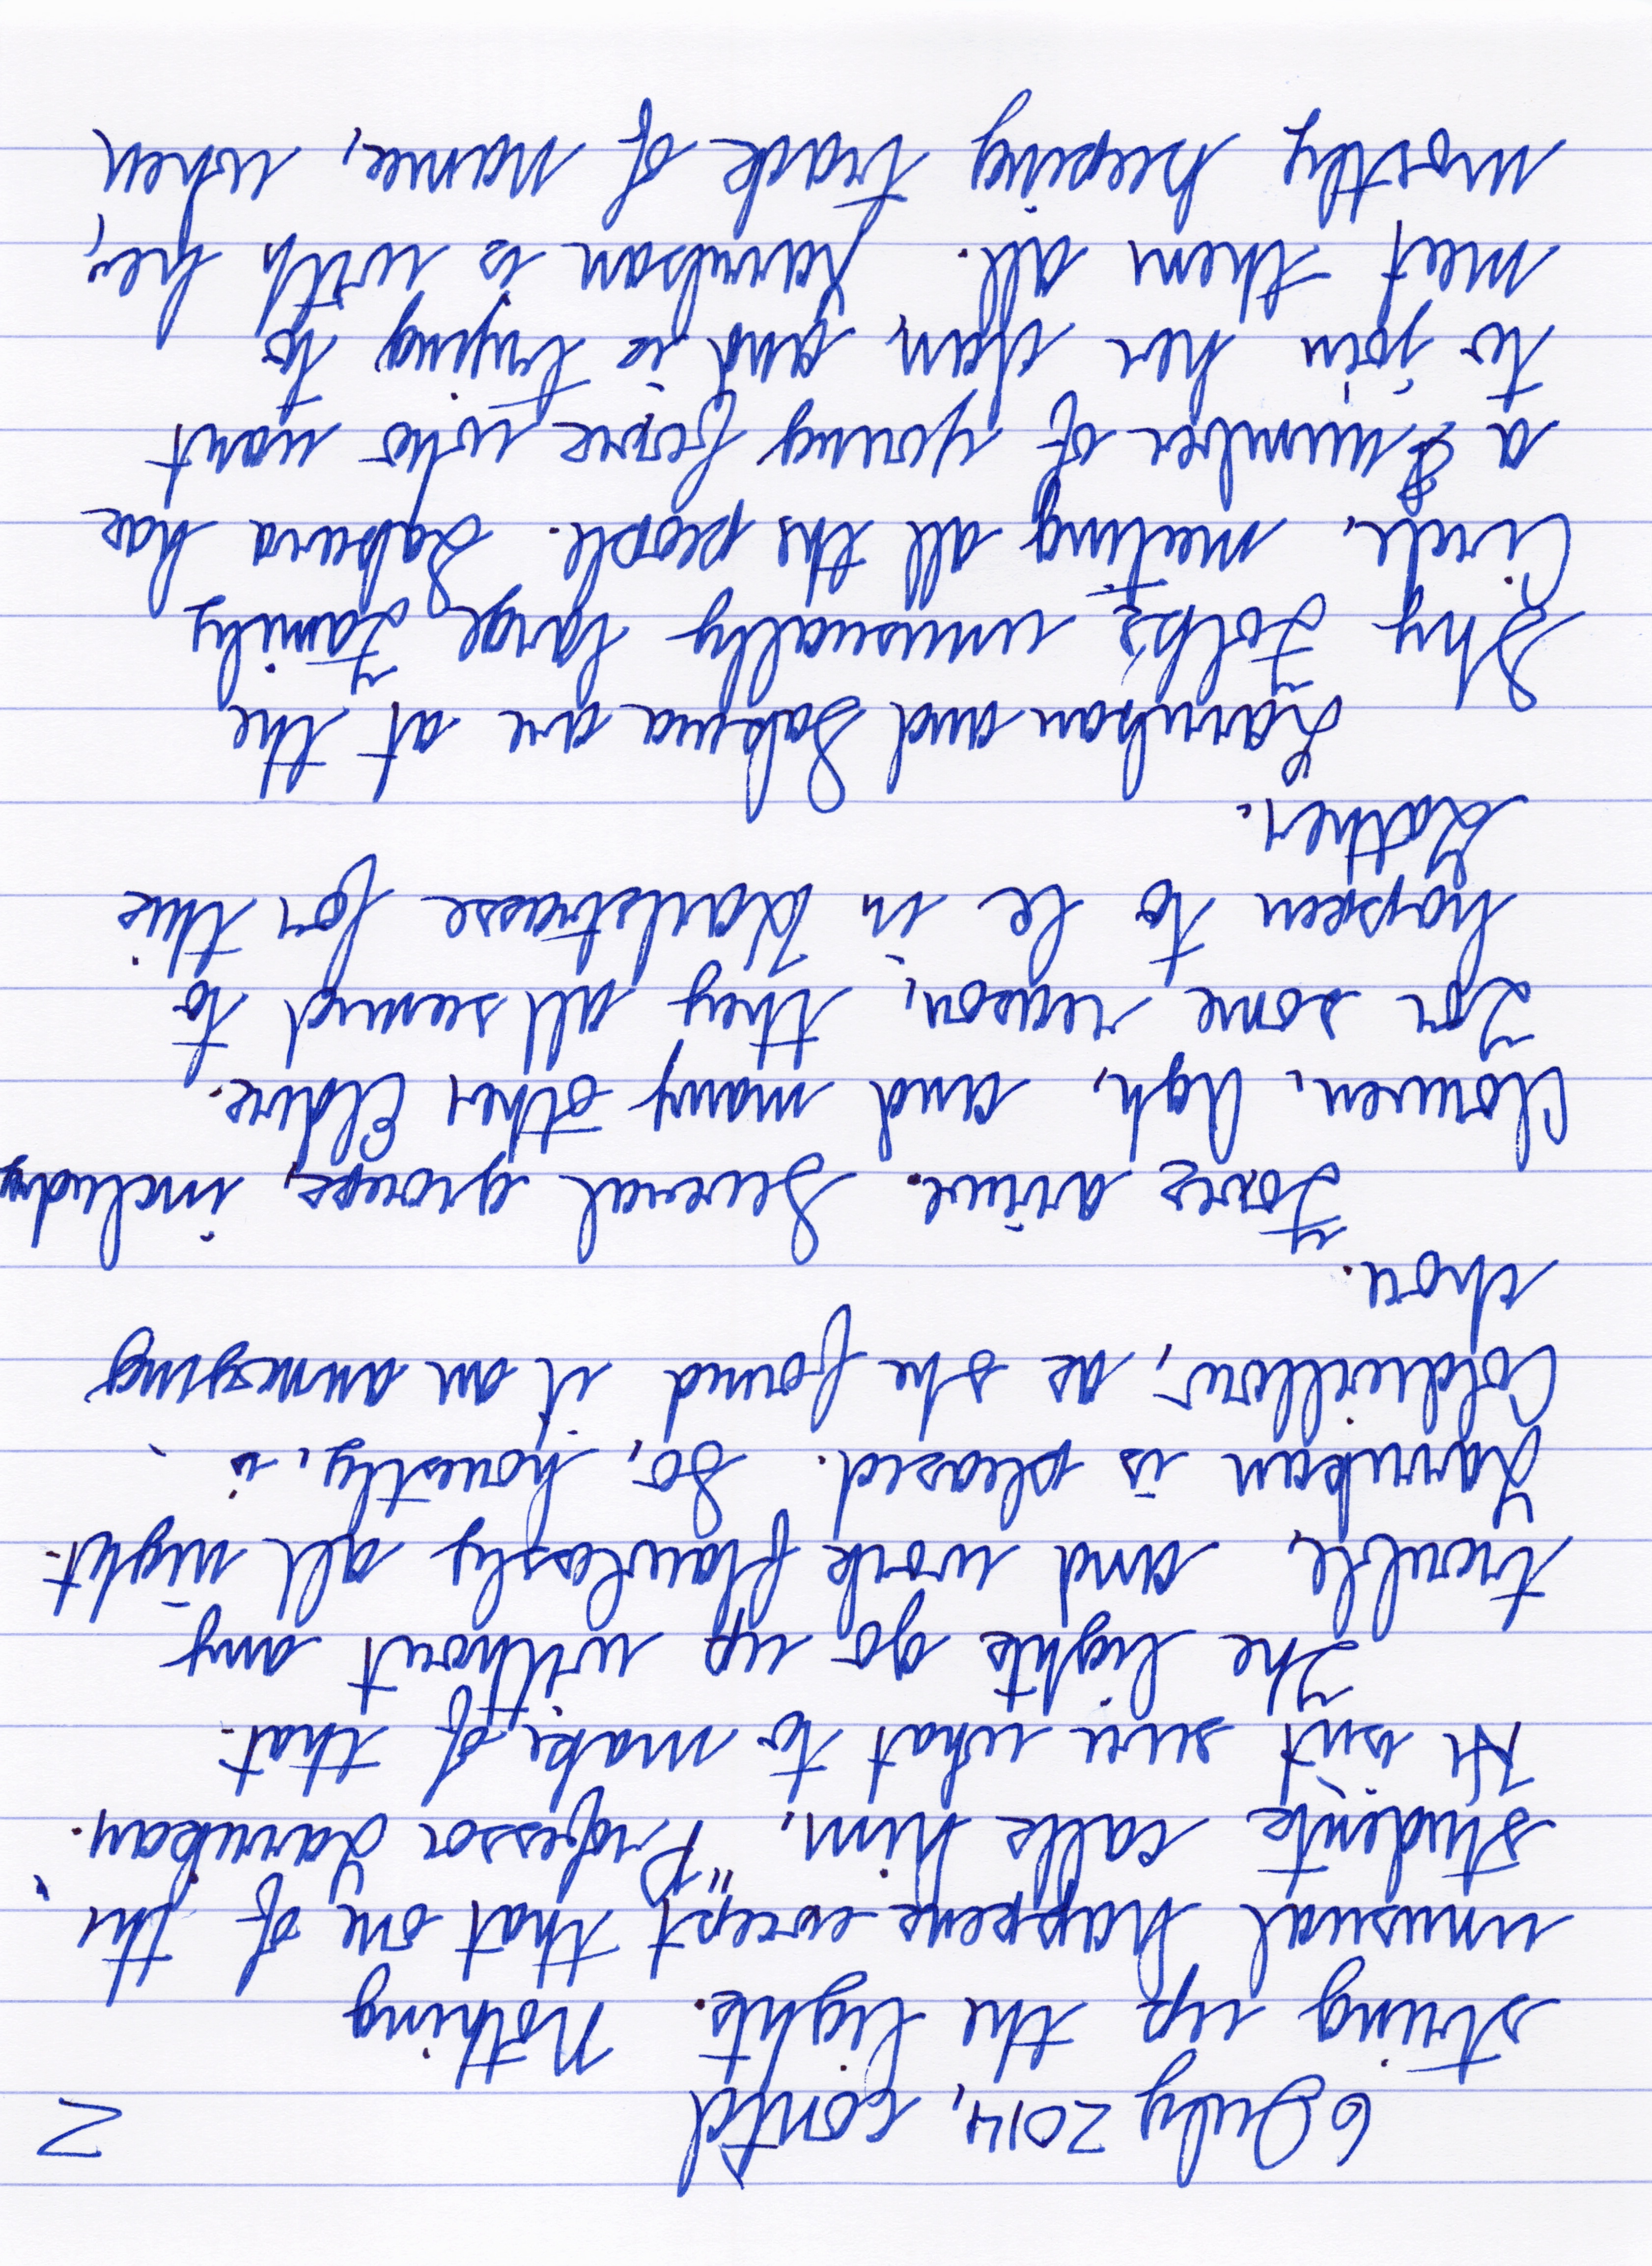 6 July 2014, cont'd 2
string up the lights. Nothing
unusual happens except that one of the
students calls him, "Professor Larrukan."
He isn't sure what to make of that.
The lights go up without any
trouble, and work flawlessly all night.
Larrukan is pleased. So, honestly, is
Coldwillow, as she found it an annoying
chore.
Foxes arrive. Several groups, including
Clowen, Agh, and many other Elders.
For some reason, they all seemed to
happen to be in Darkstrasse for this
Gather.
Larrukan and Sakura are at the
Shy Folk's unusually large Family
Circle, meeting all the people. Sakura has
a number of young foxes who want
to join her clan, and is trying to
meet them all. Larrukan is with her,
mostly keeping track of names, when